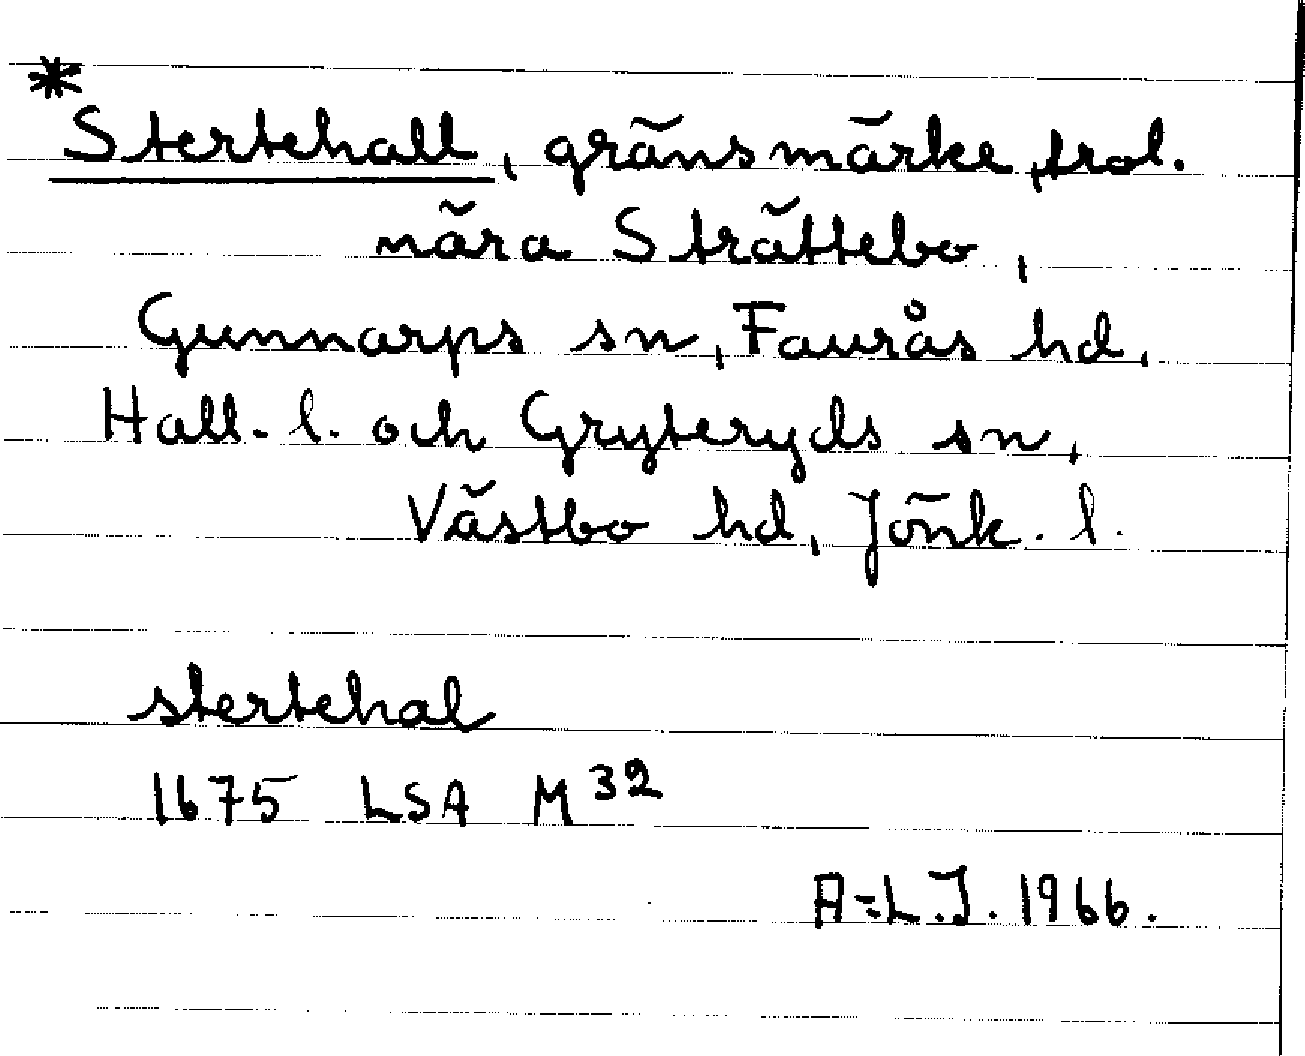 *Stertehall, gränsmärke, trol.
nära Strättebo,
Gunnarps sn, Faurås hd,
Hall. l. och Gryteryds sn,
Västbo hd, Jönk. l.
stertehal
1675 LSA M 32
A-L.J. 1966.